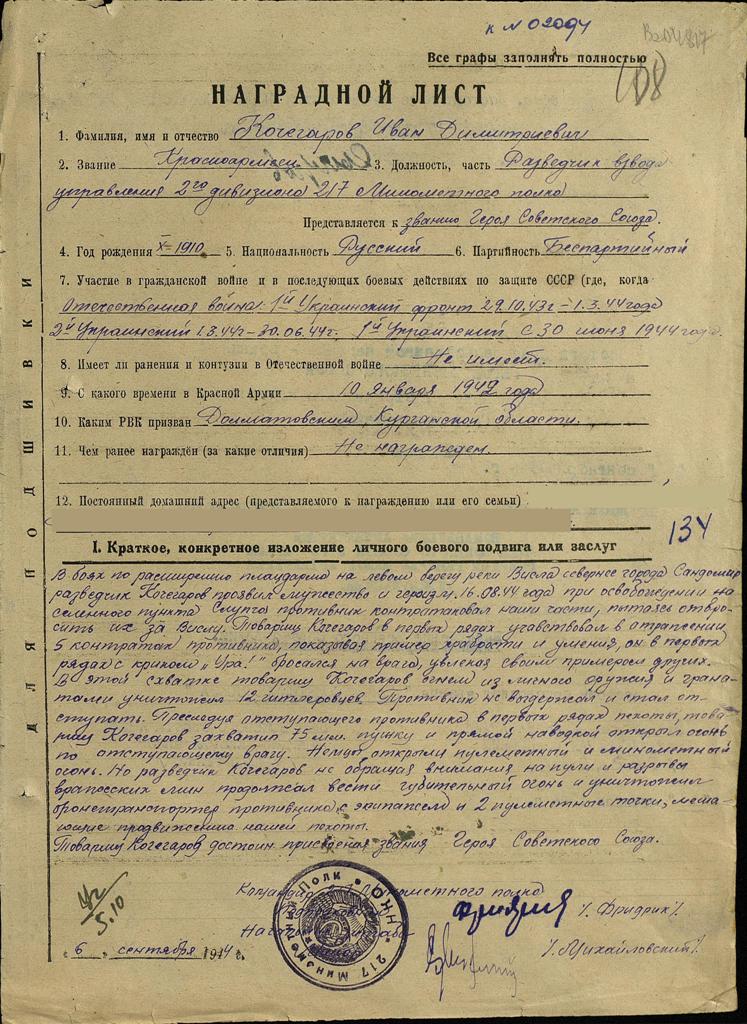 к № 02094
В204817
Все графы заполнять полностью
108
НАГРАДНОЙ ЛИСТ
1. Фамилия, имя и отчество Кочегаров Иван Димитриевич
2. Звание Красноармеец 3. Должность, часть Разведчик взвода
управления 2го дивизиона 217 Минометного полка
Представляется к званию Героя Советского Союза.
4. Год рождения X-1910 5. Национальность Русский 6. Партийность Беспартийный
7. Участие в гражданской войне и в последующих боевых действиях по защите СССР (где, когда
Отечественная война: 1й Украинский фронт 29.10.43г – 1.3.44 года
2й Украинский 1.3.44г – 30.06.44г. 1й Украинский с 30 июня 1944 года.
8. Имеет ли ранения и контузии в Отечественной войне Не имеет.
9. С какого времени в Красной Армии 10 января 1942 года
10. Каким РВК призван Долматовским, Курганской области.
11. Чем ранее награждён (за какие отличия) Не награжден.
12. Постоянный домашний адрес (представляемого к награждению или его семьи)
134
I. Краткое, конкретное изложение личного боевого подвига или заслуг
В боях по расширению плацдарма на левом берегу реки Висла севернее города Сандомир
разведчик Кочегаров проявил мужество и героизм. 16.08.44 года при освобождении на
селенного пункта противник контратаковал наши части, пытаясь отбро
сить их за Вислу. Товарищ Кочегаров в первых рядах участвовал в отражении
5 контратак противника, показывая пример храбрости и умения, он в первых
рядах с криком „Ура!" бросался на врага, увлекая своим примером других.
В этой схватке товарищ Кочегаров огнем из личного оружия и грана
тами уничтожил 12 гитлеровцев. Противник не выдержал и стал от
ступать. Преследуя отступающего противника в первых рядах пехоты, това
рищ Кочегаров захватил 75 мм. пушку и прямой наводкой открыл огонь
по отступающему врагу. Немцы открыли пулеметный и минометный
огонь. Но разведчик Кочегаров не обращая внимания на пули и разрывы
вражеских мин продолжал вести губительный огонь и уничтожил
бронетранспортер противника с экипажем и 2 пулеметные точки, меша
ющие продвижению нашей пехоты.
Товарищ Кочегаров достоин присвоения звания Героя Советского Союза.
Командир минометного полка
/Фридрик/
Начальник штаба
/Михайловский/
„6" сентября 1944 г.
5.10
217 Минометный Полк • О НКО
ДЛЯ ПОДШИВКИ